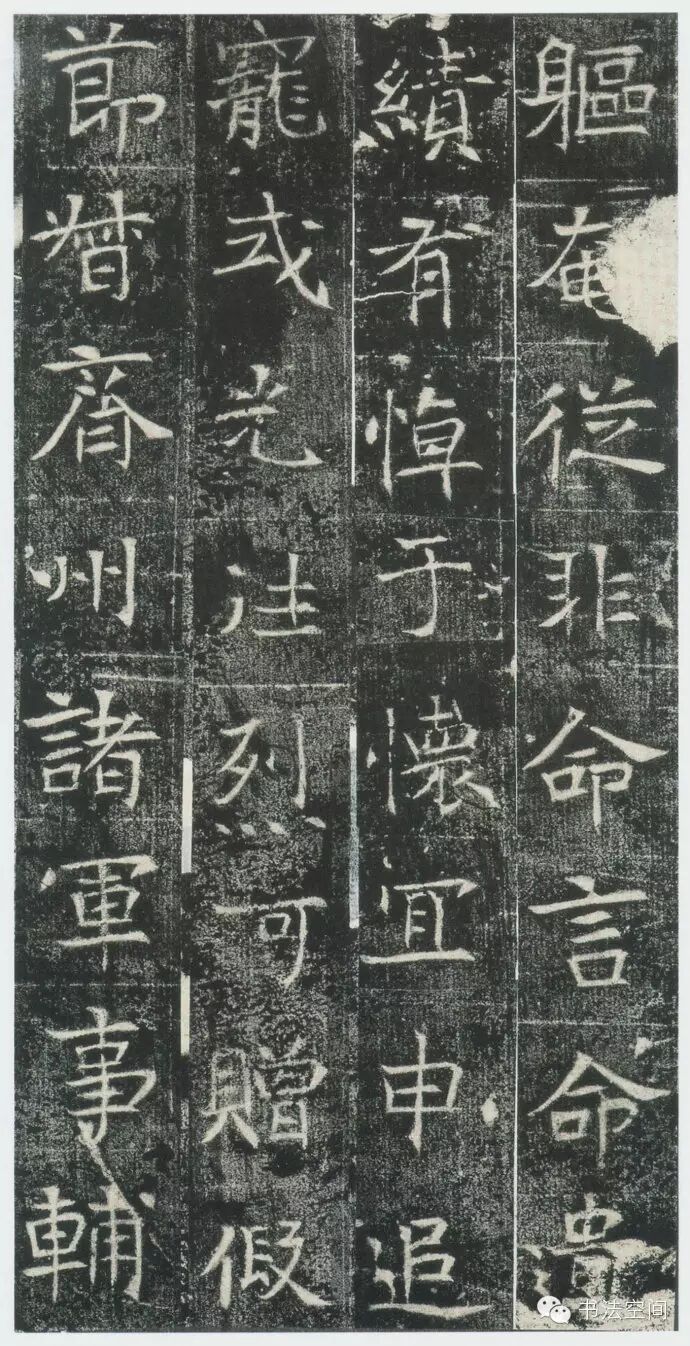 軀奄從非命言命遺
績有悼于懷宜申追
寵式光往烈可贈假
節督齊州諸軍事輔
书法空间